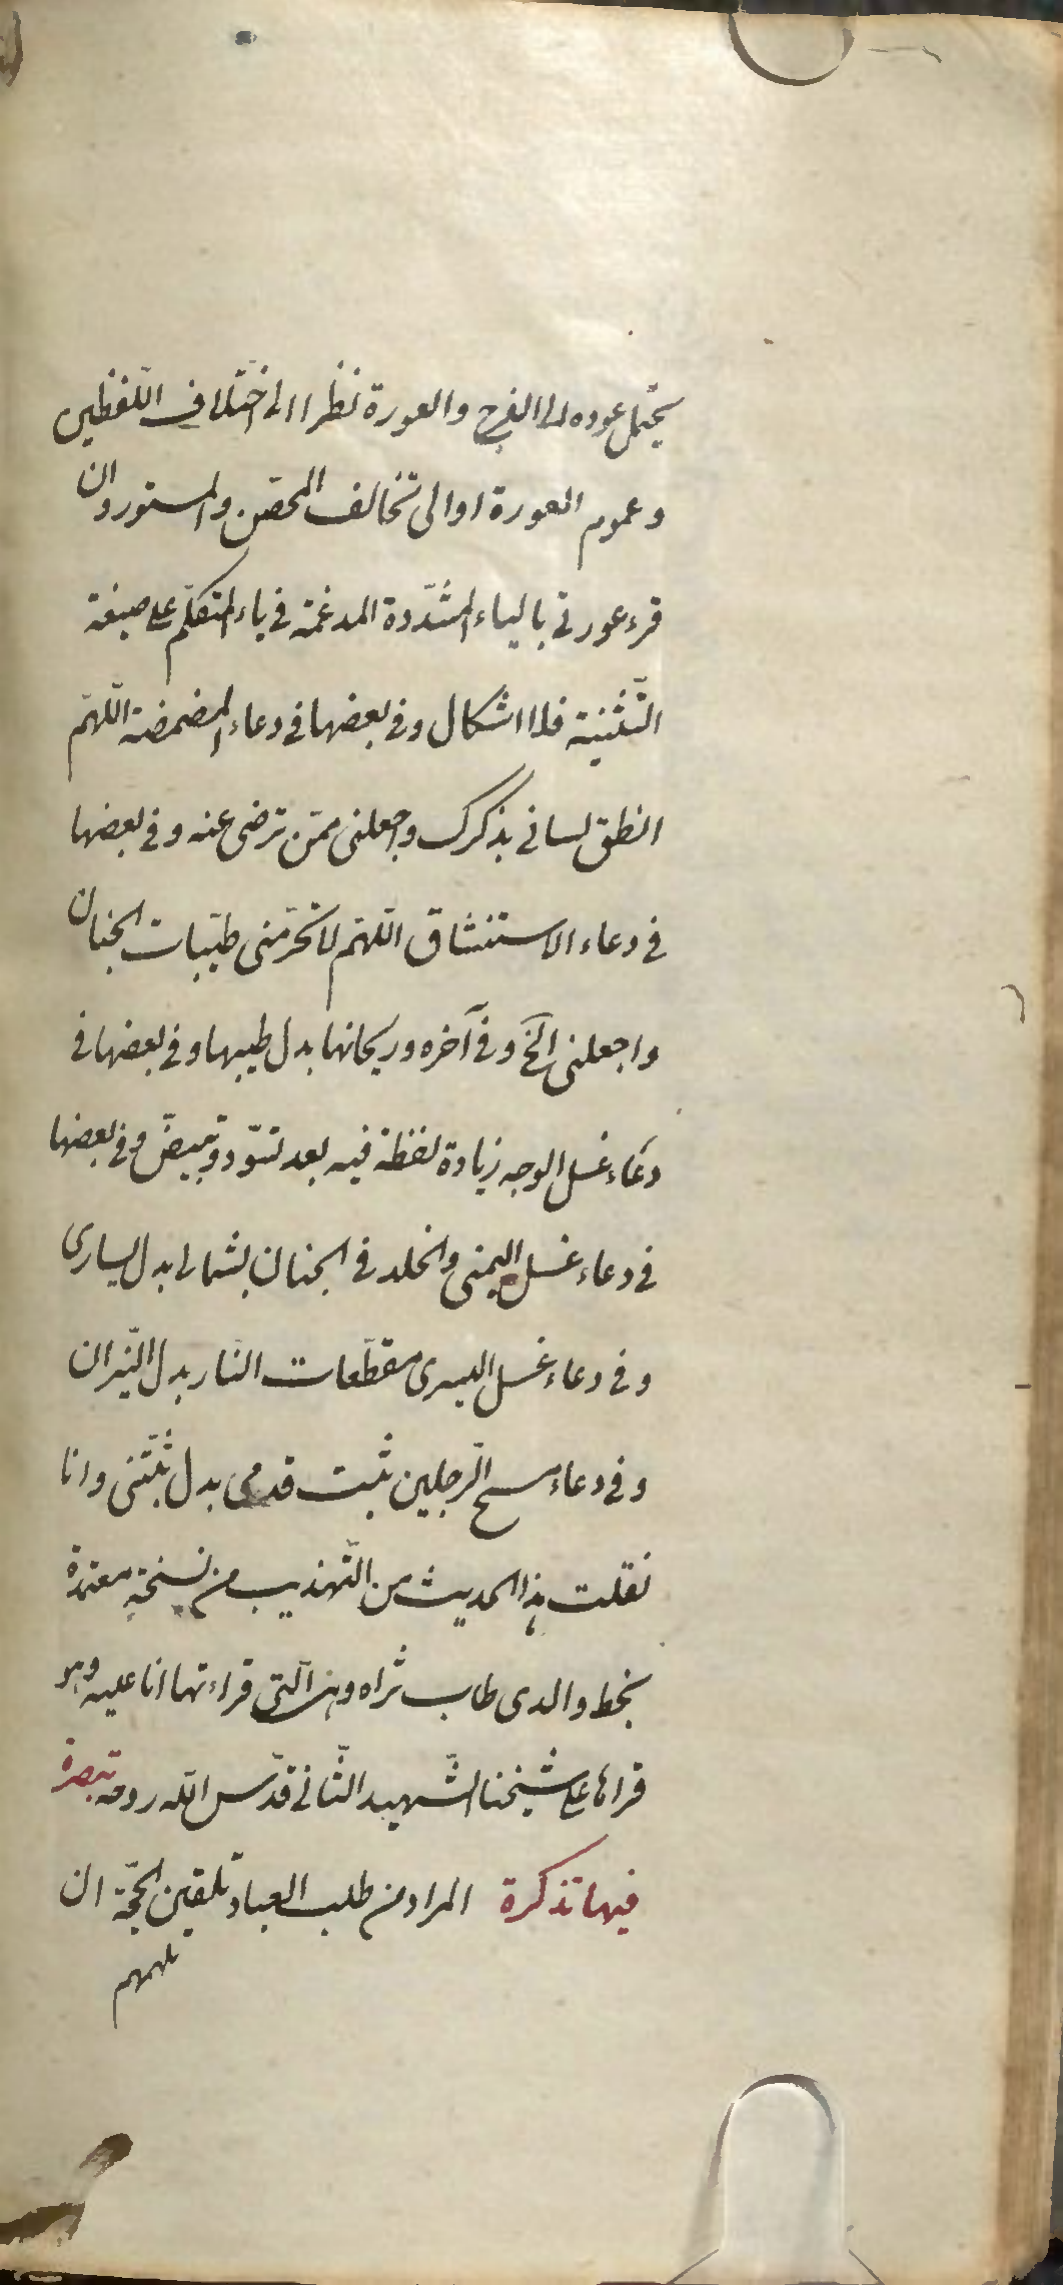 يحتمل عوده الى الفرج والعورة نظرا الى اختلاف اللّفظين
وعموم العورة او الى تخالف المحصن والمستور وان
قرء عورتى بالياء المشدّدة المدغمة فى ياء المتكلّم على صيغة
التّثنية فلا اشكال وفى بعضها فى دعاء المضمضة اللّهمّ
انطق لسانى بذكرك واجعلنى ممّن ترضى عنه وفى بعضها
فى دعاء الاستنشاق اللّهمّ لا تحرّمنى طيّبات الجنان
واجعلنى الخ وفى آخره وريحانها بدل طيبها وفى بعضها فى
دعاء غسل الوجه زيادة لفظة فيه بعد تسوّد وتبيضّ وفى بعضها
فى دعاء غسل اليمنى والخلد فى الجنان بشمالى بدل بيسارى
وفى دعاء غسل اليسرى مقطّعات النّار بدل النّيران
وفى دعاء مسح الرّجلين ثبّت قدمى بدل ثبّتنى وانا
نقلت هذا الحديث من التّهذيب من نسخة معتمدة
بخط والدى طاب ثراه وهى الّتى قراءتها انا عليه وهو
قراها على شيخنا الشّهيد الثّانى قدّس اللّه روحه تبصرة
فيها تذكرة المراد من طلب العباد تلقين الحجّة ان
يلهمهم